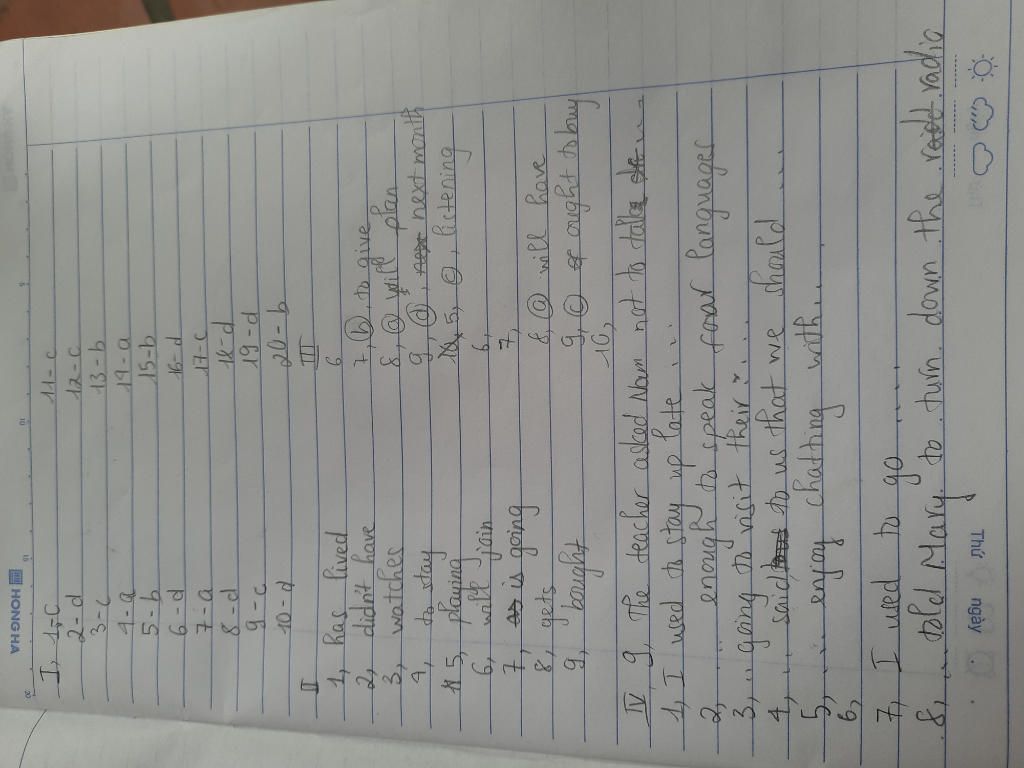 HONG HA
I, 1-c 11-c
2-d 12-c
3-c 13-b
4-a 14-a
5-b 15-b
6-d 16-d
7-a 17-c
8-d 18-d
9-c 19-d
10-d 20-b
II III
1, has lived 6
2, didn't have 7, (b) to give
3, watches 8, (a) will plan
4, to stay 9, (a), next month
5, playing 5, (a), listening
6, will join 6,
7, is going 7,
8, gets 8, (a) will have
9, bought 9, (a) ought to buy
10,
IV, 9, The teacher asked Nam not to talk ...
1, I used to stay up late ...
2, ... enough to speak four languages
3, ... going to visit their ...
4, ... said to us that we should ...
5, ... enjoy chatting with ...
6,
7, I used to go ...
8, ... told Mary to turn down the radio
Thứ ngày